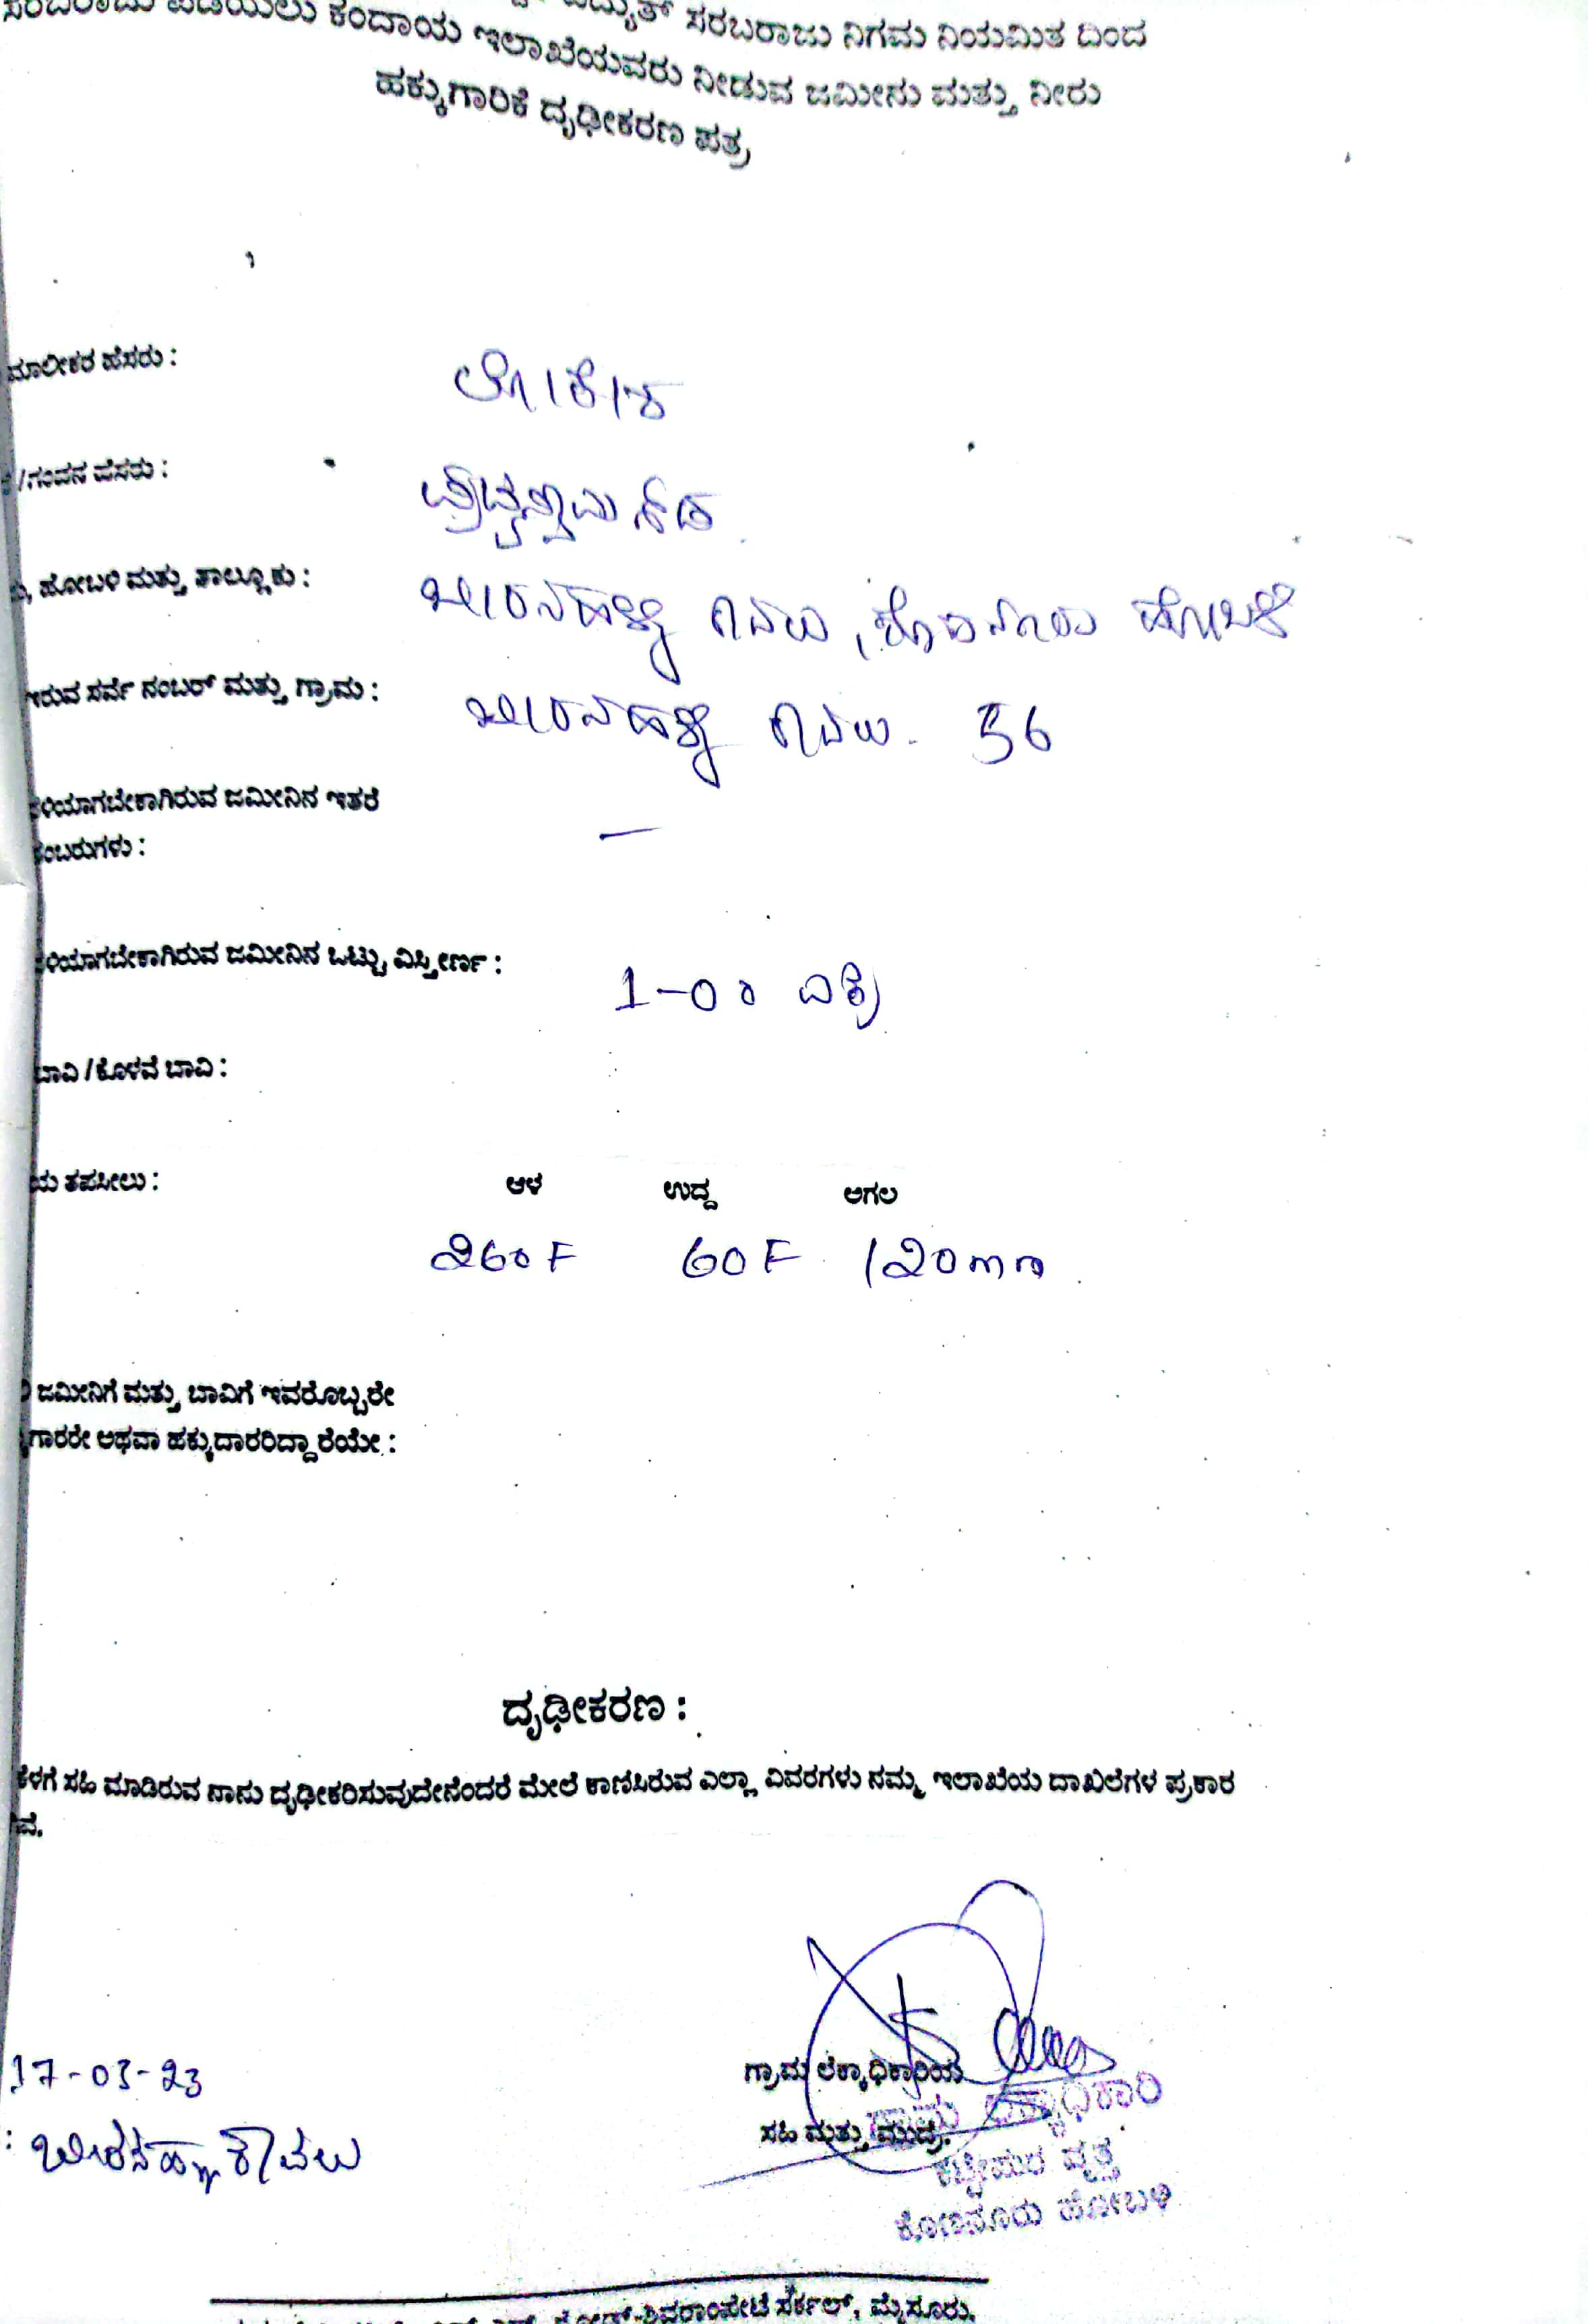 ವಿದ್ಯುತ್ ಸರಬರಾಜು ನಿಗಮ ನಿಯಮಿತ ದಿಂದ
ಸರಬರಾಜು ಪಡೆಯಲು ಕಂದಾಯ ಇಲಾಖೆಯವರು ನೀಡುವ ಜಮೀನು ಮತ್ತು ನೀರು
ಹಕ್ಕುಗಾರಿಕೆ ದೃಢೀಕರಣ ಪತ್ರ
ಮಾಲೀಕರ ಹೆಸರು : ಲೋಕೇಶ
/ಗಂಡನ ಹೆಸರು :
, ಹೋಬಳಿ ಮತ್ತು ತಾಲ್ಲೂಕು : ಬೀರನಹಳ್ಳಿ ಕಾವಲು, ಕೊಣನೂರು ಹೋಬಳಿ
ಇರುವ ಸರ್ವೆ ನಂಬರ್ ಮತ್ತು ಗ್ರಾಮ : ಬೀರನಹಳ್ಳಿ ಕಾವಲು. 56
ಳಿಯಾಗಬೇಕಾಗಿರುವ ಜಮೀನಿನ ಇತರೆ
ನಂಬರುಗಳು : —
ಳಿಯಾಗಬೇಕಾಗಿರುವ ಜಮೀನಿನ ಒಟ್ಟು ವಿಸ್ತೀರ್ಣ : 1-00 ಎಕ್ರೆ
ಬಾವಿ / ಕೊಳವೆ ಬಾವಿ :
ಯ ತಪಸೀಲು : ಆಳ ಉದ್ದ ಅಗಲ
260 F 60 F 120mm
ಜಮೀನಿಗೆ ಮತ್ತು ಬಾವಿಗೆ ಇವರೊಬ್ಬರೇ
ಗಾರರೇ ಅಥವಾ ಹಕ್ಕುದಾರರಿದ್ದಾರೆಯೇ :
ದೃಢೀಕರಣ :
ಕೆಳಗೆ ಸಹಿ ಮಾಡಿರುವ ನಾನು ದೃಢೀಕರಿಸುವುದೇನೆಂದರೆ ಮೇಲೆ ಕಾಣಿಸಿರುವ ಎಲ್ಲಾ ವಿವರಗಳು ನಮ್ಮ ಇಲಾಖೆಯ ದಾಖಲೆಗಳ ಪ್ರಕಾರ
ವೆ.
17-03-23
: ಬೀರನಹಳ್ಳಿ ಕಾವಲು
ಗ್ರಾಮ ಲೆಕ್ಕಾಧಿಕಾರಿಯ
ಸಹಿ ಮತ್ತು ಮುದ್ರೆ.
ಗ್ರಾಮ ಲೆಕ್ಕಾಧಿಕಾರಿ
ಕಟ್ಟೇಪುರ ವೃತ್ತ
ಕೊಣನೂರು ಹೋಬಳಿ
ರೋಡ್-ಶಿವರಾಂಪೇಟೆ ಸರ್ಕಲ್, ಮೈಸೂರು.